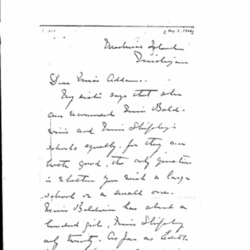 Mackinac Island
Michigan
Dear Miss Addams.
My sister says that she
can recommend Miss Bald-
wins and Miss Shipley's
schools equally. for they are
both good. The only question
is whether you wish a large
school or a small one.
Miss Baldwin has about a
hundred girls, Miss Shipley
only twenty. As far as